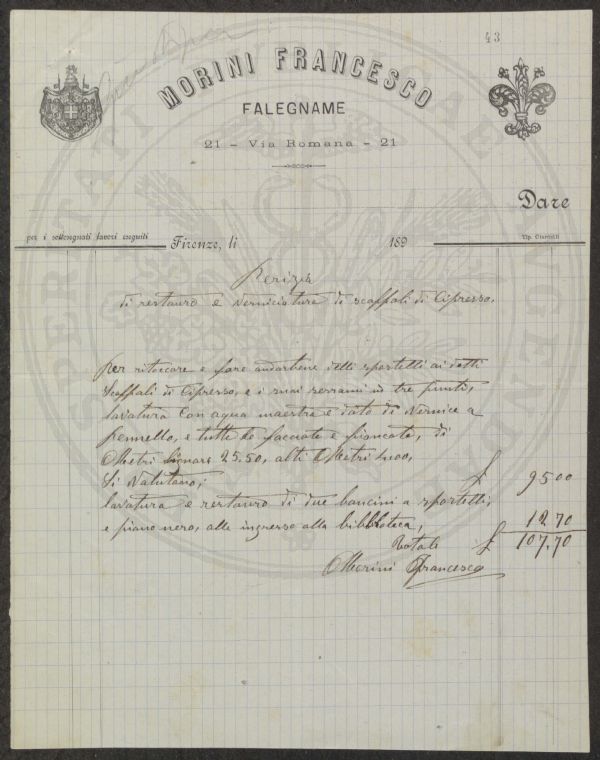 43
MORINI FRANCESCO
FALEGNAME
21 - Via Romana - 21
Dare
per i sottosegnati lavori eseguiti
Firenze, li 189
Tip. Ciardelli
Perizia
di restauro e verniciatura di scaffali di Cipresso.
Per ritoccare e fare andar bene delli sportelli ai detti
Scaffali di Cipresso, e i suoi serrami in tre punti,
lavatura con aqua maestra e dato di Vernice a
pennello, e tutte le facciate e fiancate, di
Metri 25.50, alti Metri 4.00,
Si Valutano; £ 95 00
lavatura e restauro di due bancini a sportelli,
e piano nero, alle ingresso alla biblioteca, 12 70
Totale £ 107,70
Morini Francesco